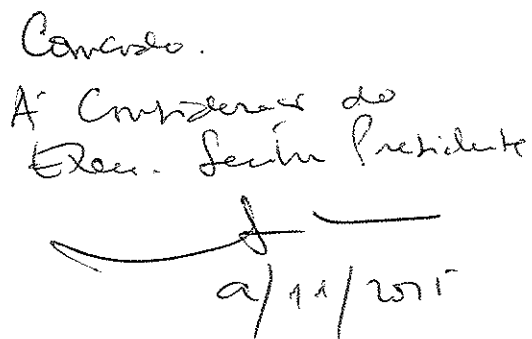 Concordo.
À Consideração do
Exmo. Senhor Presidente
/11/2015